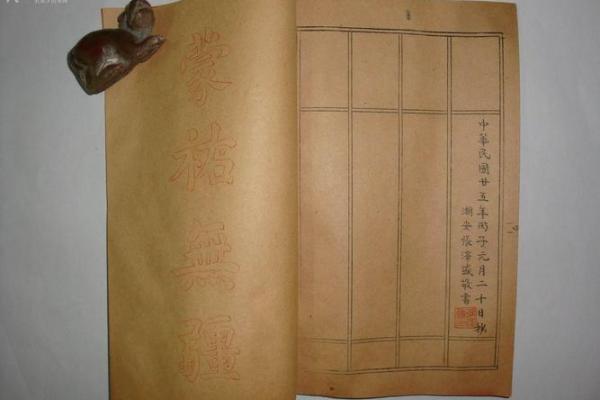 中華民國廿五年丙子元月二十日抄
潮安張澤盛敬書
蒙祐無疆